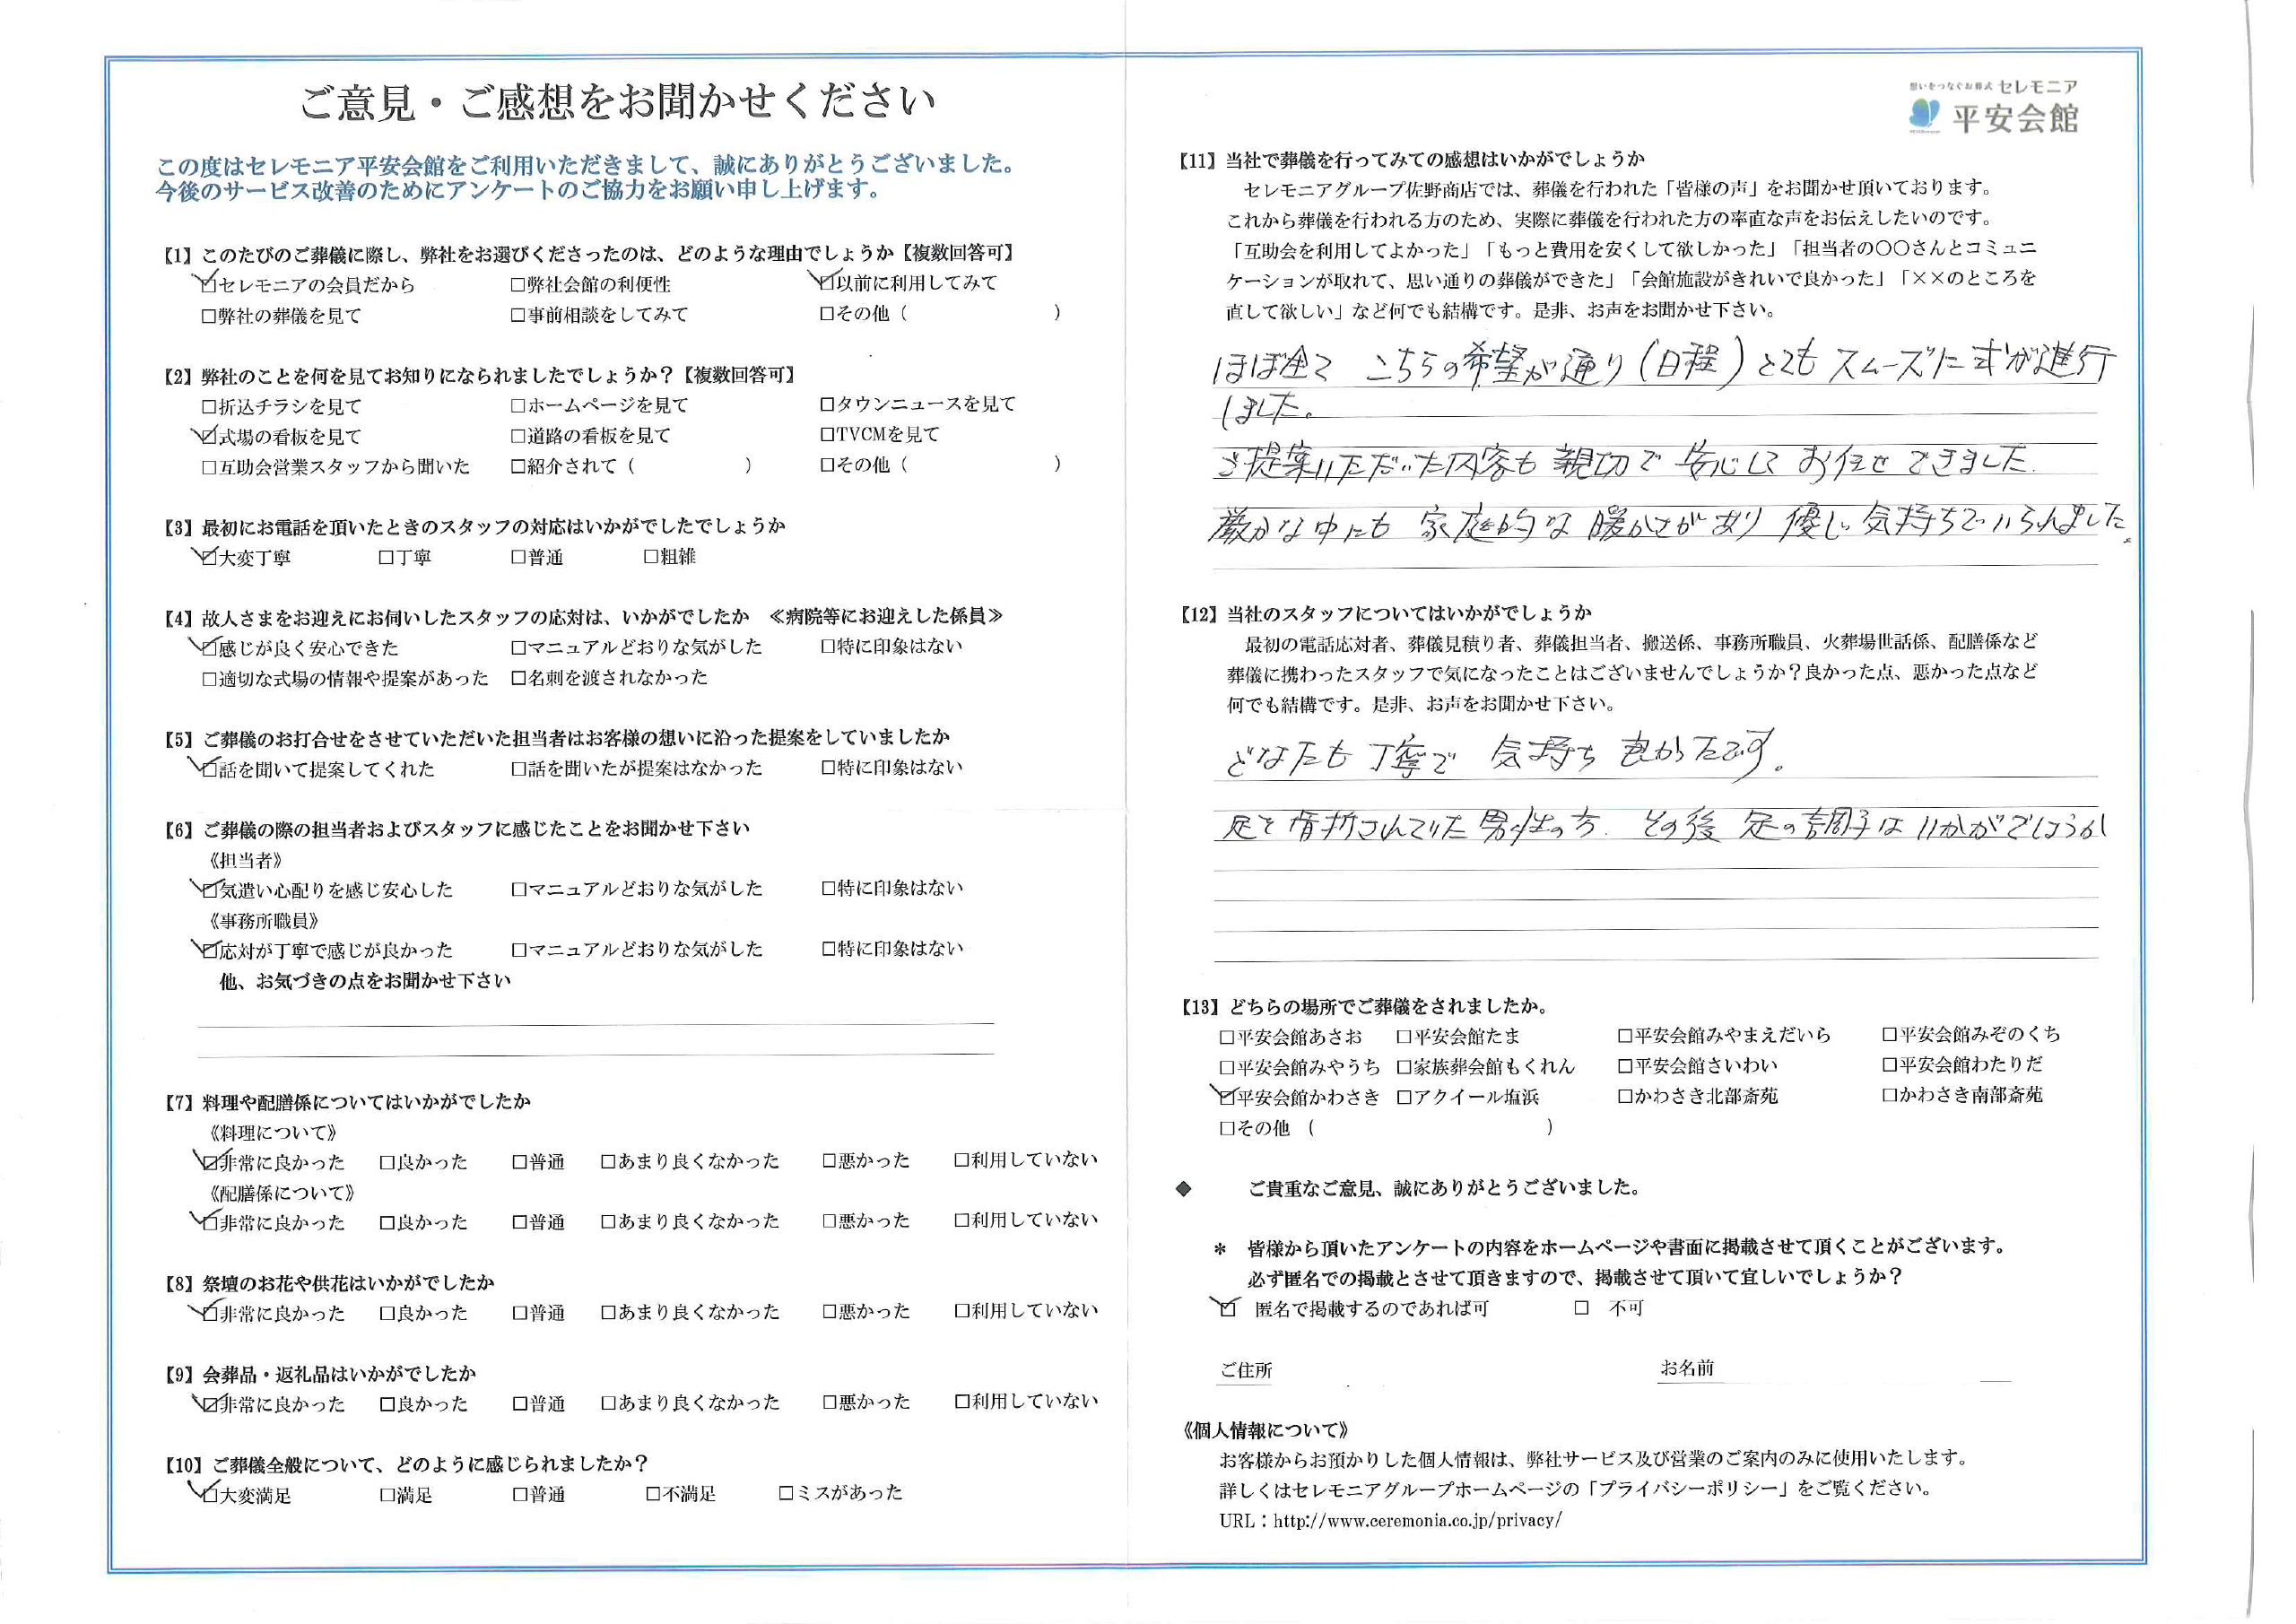 ご意見・ご感想をお聞かせください
この度はセレモニア平安会館をご利用いただきまして、誠にありがとうございました。
今後のサービス改善のためにアンケートのご協力をお願い申し上げます。
【1】このたびのご葬儀に際し、弊社をお選びくださったのは、どのような理由でしょうか【複数回答可】
☑セレモニアの会員だから □弊社会館の利便性 ☑以前に利用してみて
□弊社の葬儀を見て □事前相談をしてみて □その他（ ）
【2】弊社のことを何を見てお知りになられましたでしょうか？【複数回答可】
□折込チラシを見て □ホームページを見て □タウンニュースを見て
☑式場の看板を見て □道路の看板を見て □TVCMを見て
□互助会営業スタッフから聞いた □紹介されて（ ） □その他（ ）
【3】最初にお電話を頂いたときのスタッフの対応はいかがでしたでしょうか
☑大変丁寧 □丁寧 □普通 □粗雑
【4】故人さまをお迎えにお伺いしたスタッフの応対は、いかがでしたか ≪病院等にお迎えした係員≫
☑感じが良く安心できた □マニュアルどおりな気がした □特に印象はない
□適切な式場の情報や提案があった □名刺を渡されなかった
【5】ご葬儀のお打合せをさせていただいた担当者はお客様の想いに沿った提案をしていましたか
☑話を聞いて提案してくれた □話を聞いたが提案はなかった □特に印象はない
【6】ご葬儀の際の担当者およびスタッフに感じたことをお聞かせ下さい
《担当者》
☑気遣い心配りを感じ安心した □マニュアルどおりな気がした □特に印象はない
《事務所職員》
☑応対が丁寧で感じが良かった □マニュアルどおりな気がした □特に印象はない
他、お気づきの点をお聞かせ下さい
【7】料理や配膳係についてはいかがでしたか
《料理について》
☑非常に良かった □良かった □普通 □あまり良くなかった □悪かった □利用していない
《配膳係について》
☑非常に良かった □良かった □普通 □あまり良くなかった □悪かった □利用していない
【8】祭壇のお花や供花はいかがでしたか
☑非常に良かった □良かった □普通 □あまり良くなかった □悪かった □利用していない
【9】会葬品・返礼品はいかがでしたか
☑非常に良かった □良かった □普通 □あまり良くなかった □悪かった □利用していない
【10】ご葬儀全般について、どのように感じられましたか？
☑大変満足 □満足 □普通 □不満足 □ミスがあった
想いをつなぐお葬式 セレモニア
平安会館
【11】当社で葬儀を行ってみての感想はいかがでしょうか
セレモニアグループ佐野商店では、葬儀を行われた「皆様の声」をお聞かせ頂いております。
これから葬儀を行われる方のため、実際に葬儀を行われた方の率直な声をお伝えしたいのです。
「互助会を利用してよかった」「もっと費用を安くして欲しかった」「担当者の〇〇さんとコミュニ
ケーションが取れて、思い通りの葬儀ができた」「会館施設がきれいで良かった」「××のところを
直して欲しい」など何でも結構です。是非、お声をお聞かせ下さい。
ほぼ全て こちらの希望が通り（日程）とてもスムーズに式が進行
しました。
ご提案いただいた内容も親切で安心してお任せできました.
厳かな中にも家庭的な暖かさがあり優しい気持ちでいられました。
【12】当社のスタッフについてはいかがでしょうか
最初の電話応対者、葬儀見積り者、葬儀担当者、搬送係、事務所職員、火葬場世話係、配膳係など
葬儀に携わったスタッフで気になったことはございませんでしょうか？良かった点、悪かった点など
何でも結構です。是非、お声をお聞かせ下さい。
どなたも丁寧で 気持ち良かったです。
足を骨折されていた男性の方. その後 足の調子はいかがでしょうか
【13】どちらの場所でご葬儀をされましたか。
□平安会館あさお □平安会館たま □平安会館みやまえだいら □平安会館みぞのくち
□平安会館みやうち □家族葬会館もくれん □平安会館さいわい □平安会館わたりだ
☑平安会館かわさき □アクイール塩浜 □かわさき北部斎苑 □かわさき南部斎苑
□その他（ ）
◆ ご貴重なご意見、誠にありがとうございました。
＊ 皆様から頂いたアンケートの内容をホームページや書面に掲載させて頂くことがございます。
必ず匿名での掲載とさせて頂きますので、掲載させて頂いて宜しいでしょうか？
☑ 匿名で掲載するのであれば可 □ 不可
ご住所 お名前
《個人情報について》
お客様からお預かりした個人情報は、弊社サービス及び営業のご案内のみに使用いたします。
詳しくはセレモニアグループホームページの「プライバシーポリシー」をご覧ください。
URL：http://www.ceremonia.co.jp/privacy/